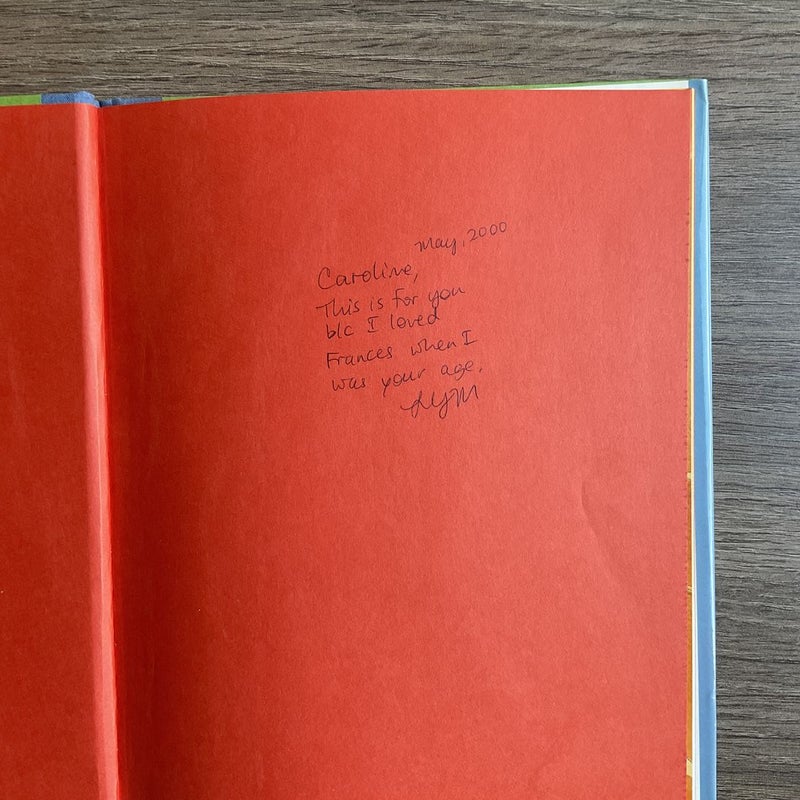 May, 2000
Caroline,
This is for you
b/c I loved
Frances when I
was your age.